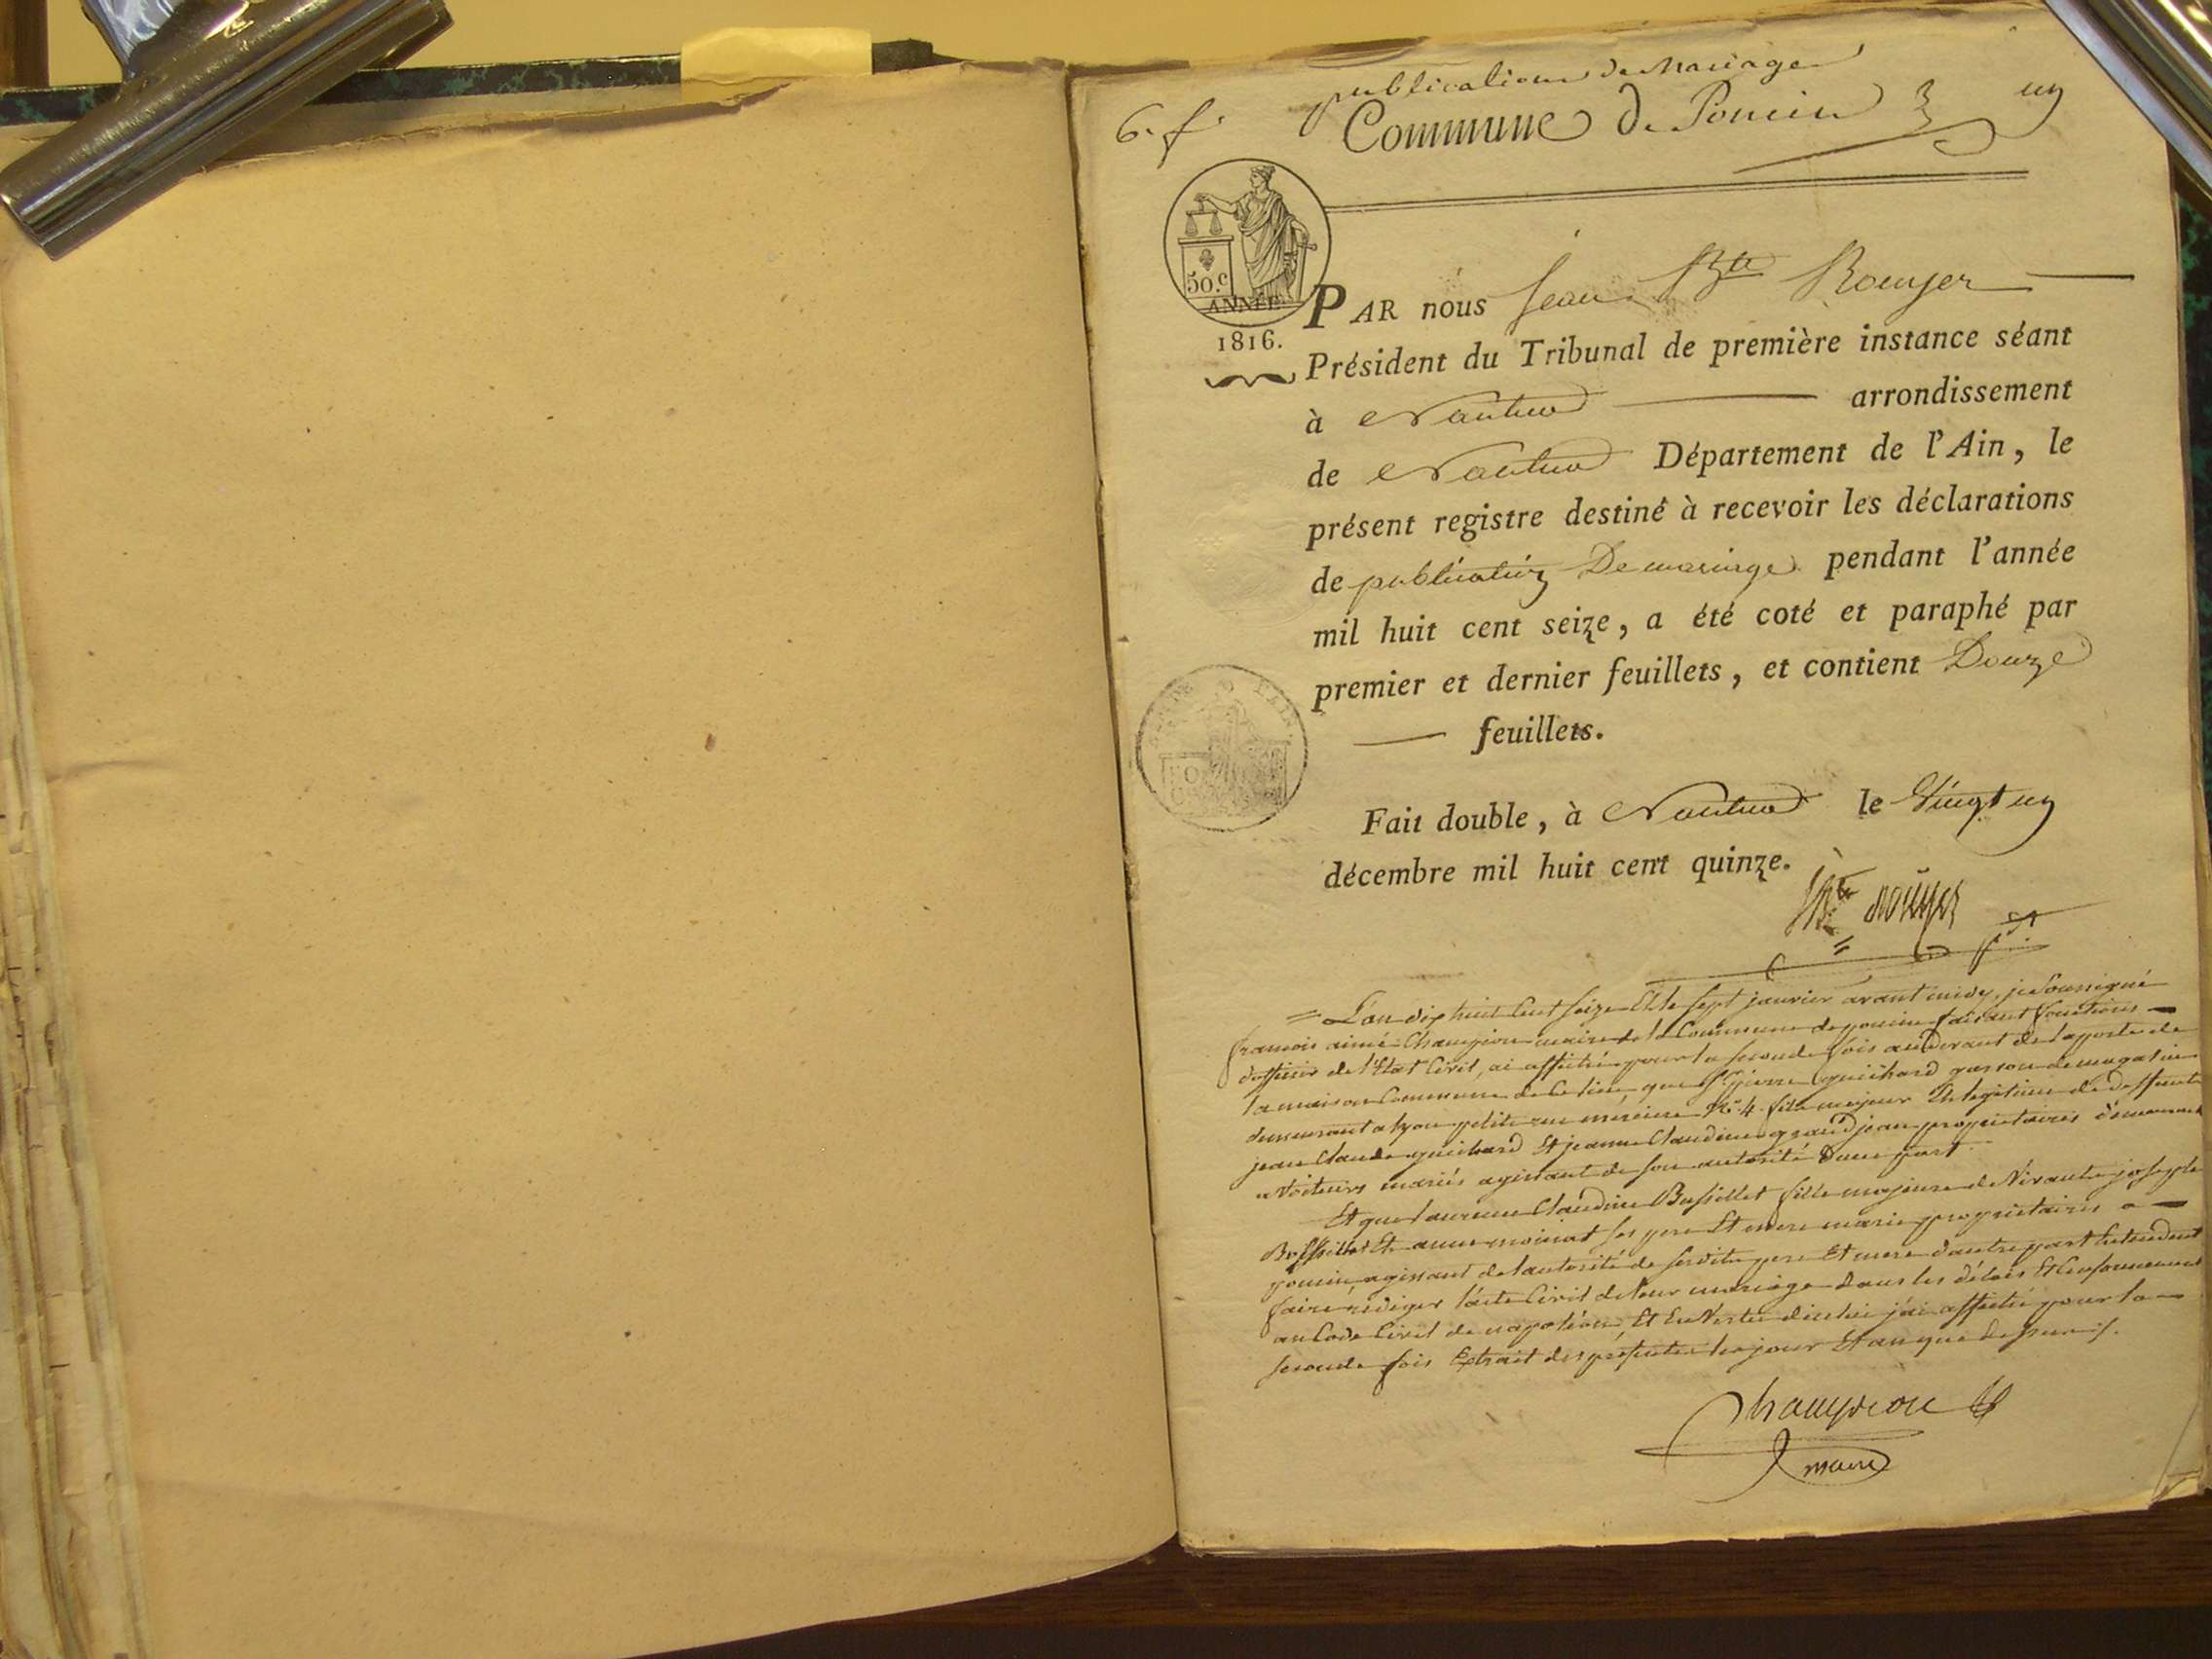 publications de Mariage
6. f.
Commune de Poncin un
50.c
ANNÉE
1816.
PAR nous Jean Bte Rouyer
Président du Tribunal de première instance séant
à Nantua arrondissement
de Nantua Département de l'Ain, le
présent registre destiné à recevoir les déclarations
de publication De mariage pendant l'année
mil huit cent seize, a été coté et paraphé par
premier et dernier feuillets, et contient Douze
feuillets.
Fait double, à Nantua le Vingt un
décembre mil huit cent quinze.
JBte rouyer
= L'an dix huit Cent Seize Et le sept janvier avant midy, je Soussigné
françois aimé Champion maire de la Commune de poncin faisant fonctions
dofficier de l'Etat Civil, ai affiché pour la seconde fois audevant de la porte de
la maison Commune de Ce lieu, que Sr pierre guichard garson de magasin
demeurant a lyon petite rue merciere No. 4. fils majeur Et legitime de deffunts
jean Claude guichard Et jeanne Claudine grandjean propriétaires demeurant
a Voiteurs mariés agissant de son autorité Dune part.
Et que laurence Claudine Bussillet fille majeure de Vivants joseph
Bussillet Et anne moinat ses pere Et mere mariés propriétaires a
poncin, agissant de lautorité de sesdits pere Et mere dautre part Entendent
faire rédiger lacte Civil de leur mariage dans les délais Et Conformement
au Code Civil de napoléon, Et En Vertu dicelui j'ai affiché pour la
seconde fois Extrait des présentes les jour Et an que dessus.
Champion
maire